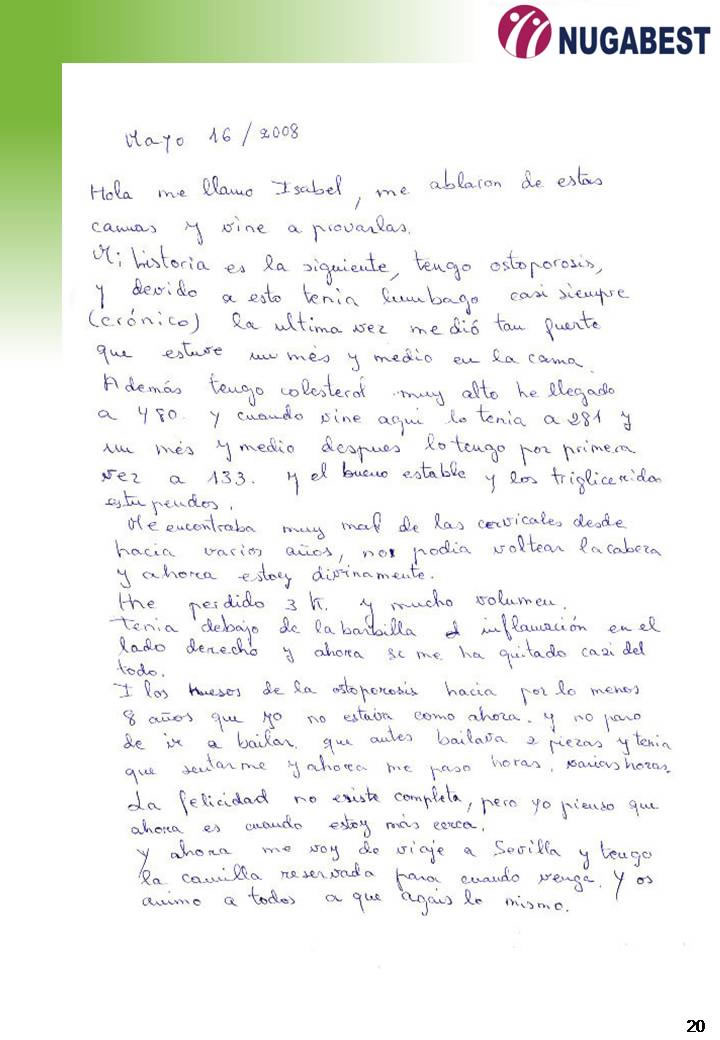 NUGABEST
Mayo 16/2008
Hola me llamo Isabel, me ablaron de estas
camas y vine a provarlas.
Mi historia es la siguiente, tengo ostoporosis,
y devido a esto tenia lumbago casi siempre
(crónico) la ultima vez me dió tan fuerte
que estuve un més y medio en la cama.
Además tengo colesterol muy alto he llegado
a 480. y cuando vine aqui lo tenia a 281 y
un més y medio despues lo tengo por primera
vez a 133. y el bueno estable y los trigliceridos
estupendos.
Me encontraba muy mal de las cervicales desde
hacia varios años, no podia voltear la cabeza
y ahora estoy divinamente.
He perdido 3 K. y mucho volumen.
Tenia debajo de la barbilla inflamación en el
lado derecho y ahora se me ha quitado casi del
todo.
I los huesos de la ostoporosis hacia por lo menos
8 años que yo no estava como ahora. y no paro
de ir a bailar, que antes bailava 2 piezas y tenia
que sentarme y ahora me paso horas, varias horas.
La felicidad no existe completa, pero yo pienso que
ahora es cuando estoy más cerca.
Y ahora me voy de viaje a Sevilla y tengo
la camilla reservada para cuando venga. Y os
animo a todos a que agais lo mismo.
20